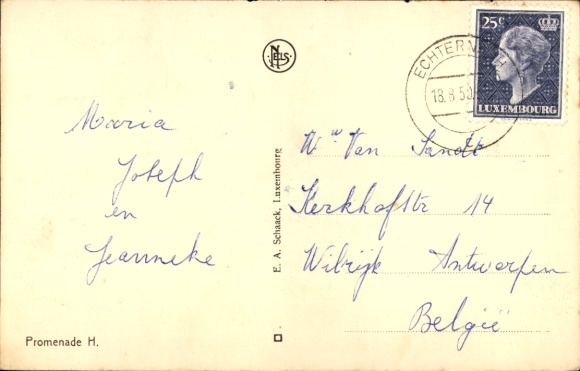 Maria
Joseph
en
Jeanneke
Promenade H.
NELS
E. A. Schaack, Luxembourg
25c
LUXEMBOURG
18.8.50
Ww Van Sandt
Kerkhofstr 14
Wilrijk Antwerpen
België